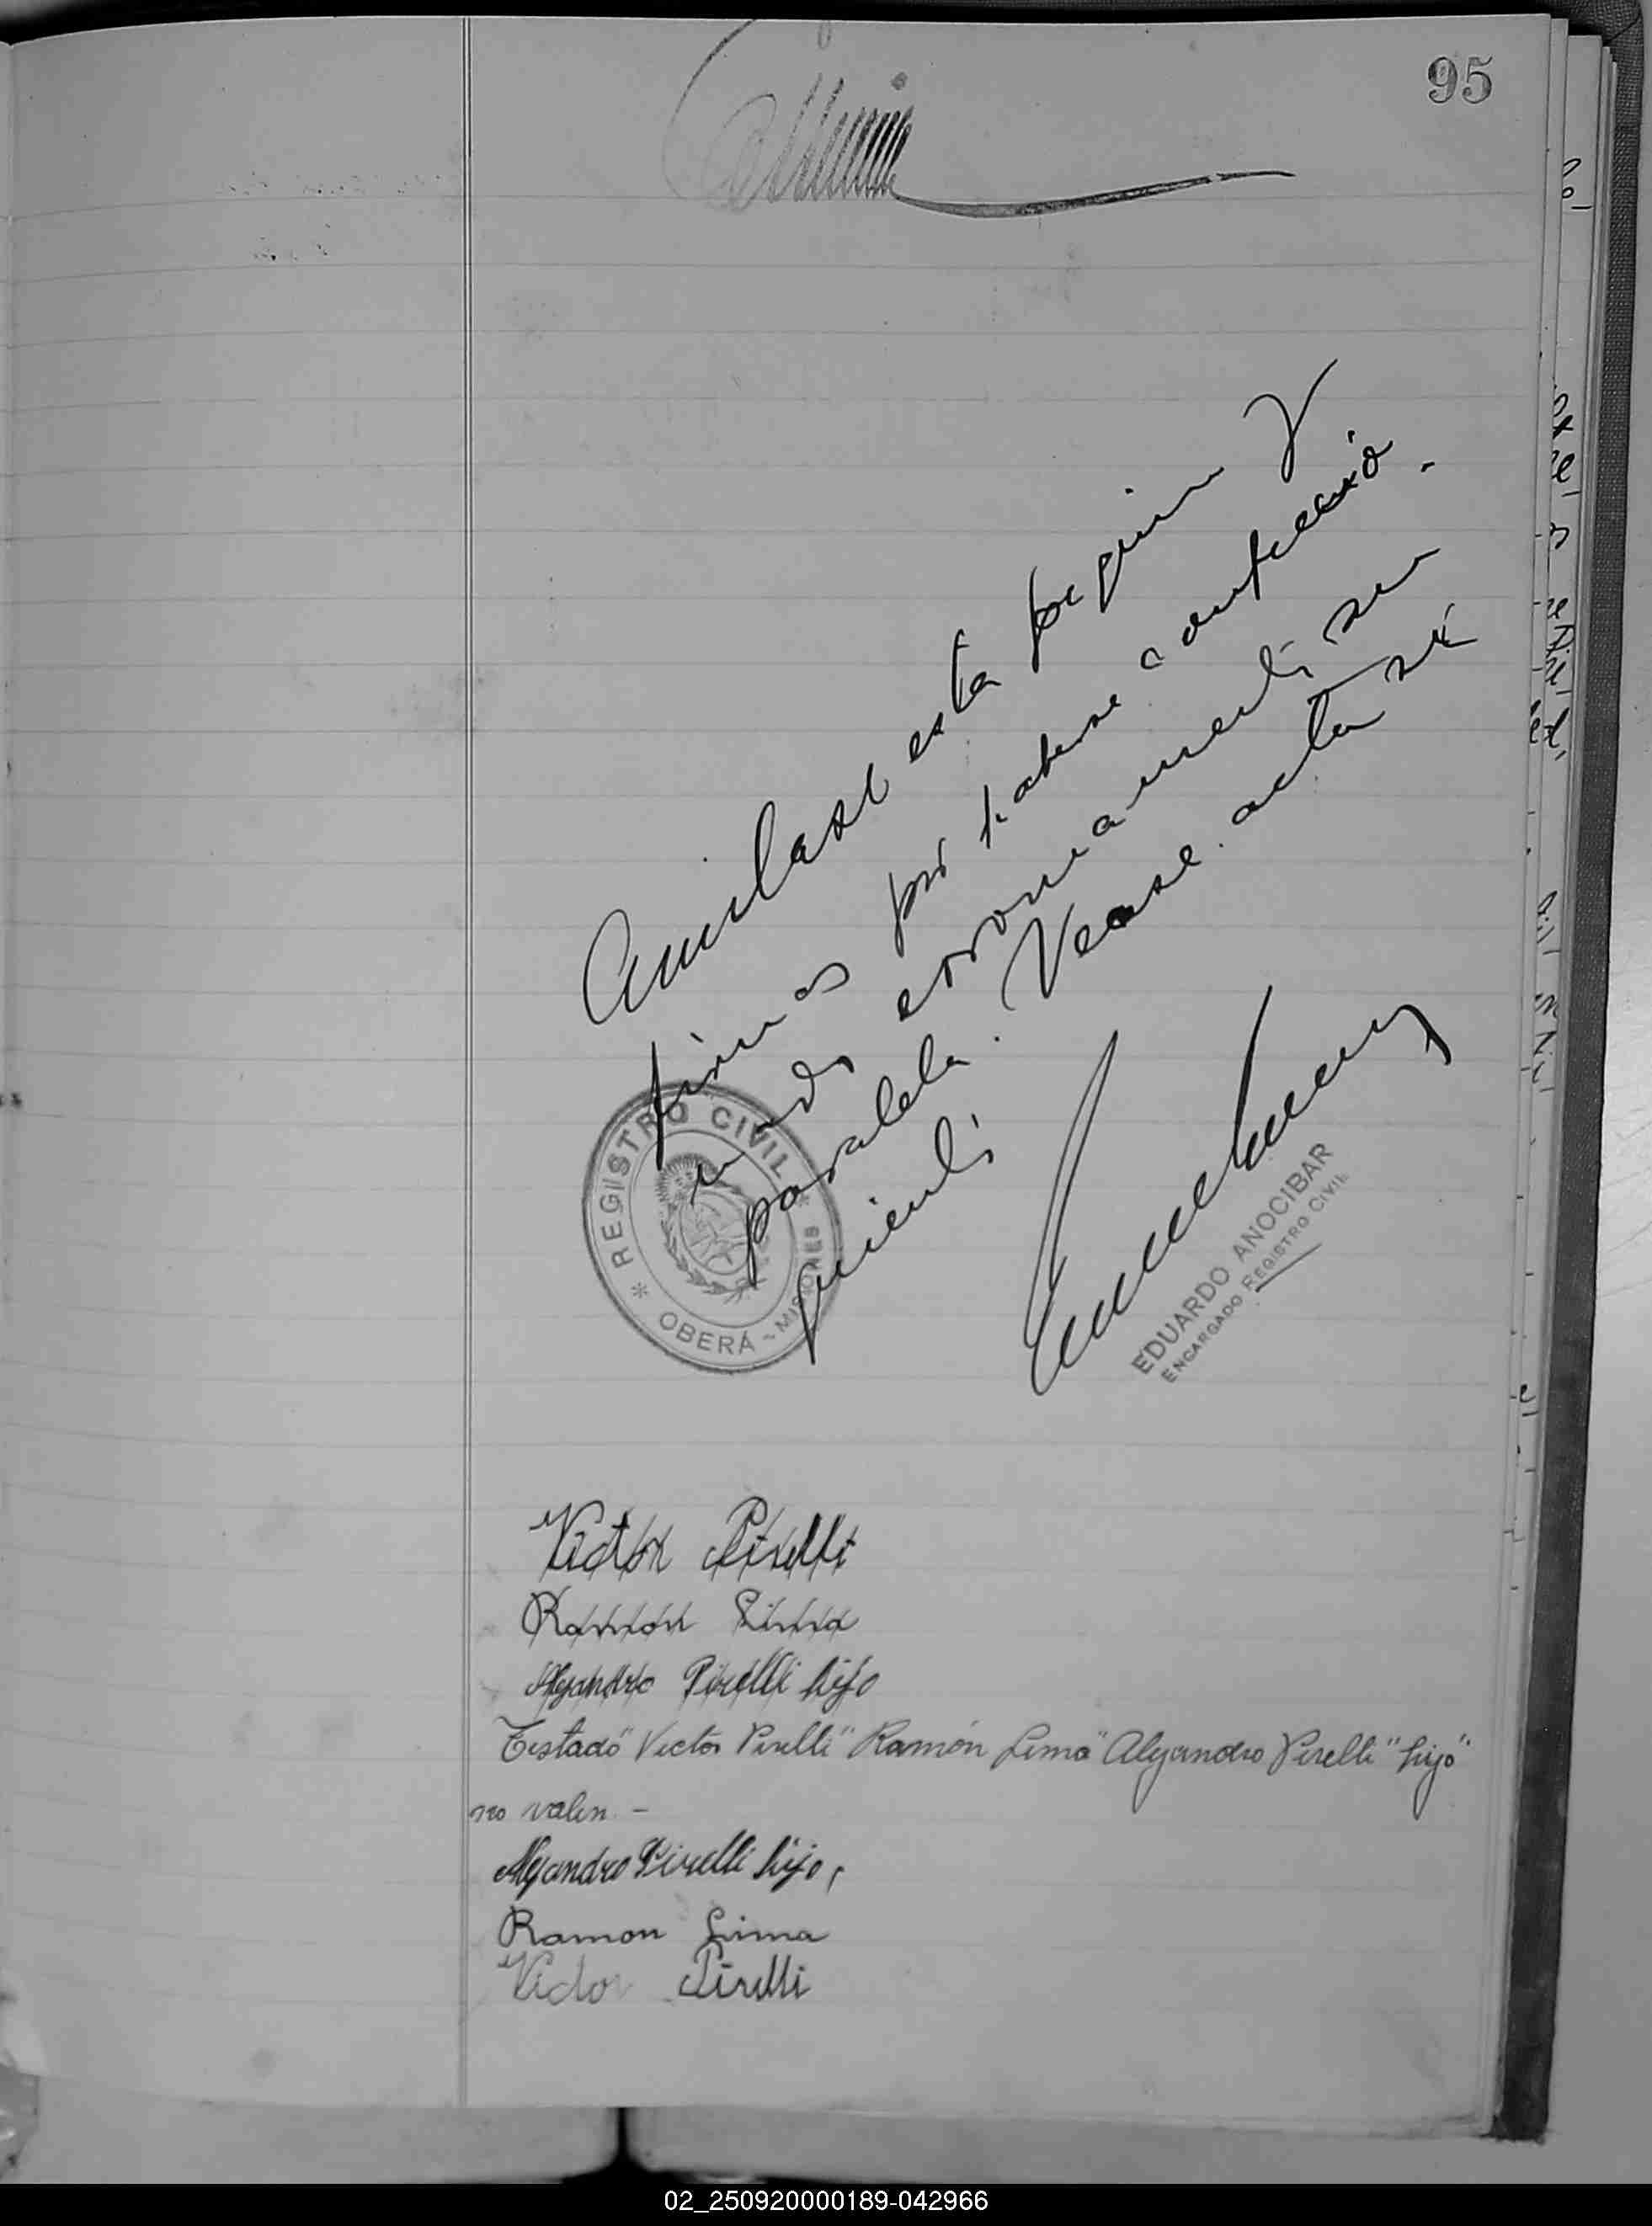 95
Anulase esta pagina y
firmas por haberse confeccio-
nado erroneamente su
paralela. Vease acta si-
guiente
REGISTRO CIVIL
OBERÁ - MISIONES
EDUARDO ANOCIBAR
ENCARGADO REGISTRO CIVIL
Victor Pirelli
Ramón Lima
Alejandro Pirelli hijo
Testado "Victor Pirelli" Ramón Lima "Alejandro Pirelli" "hijo"
no valen -
Alejandro Pirelli hijo,
Ramon Lima
Victor Pirelli
02_250920000189-042966